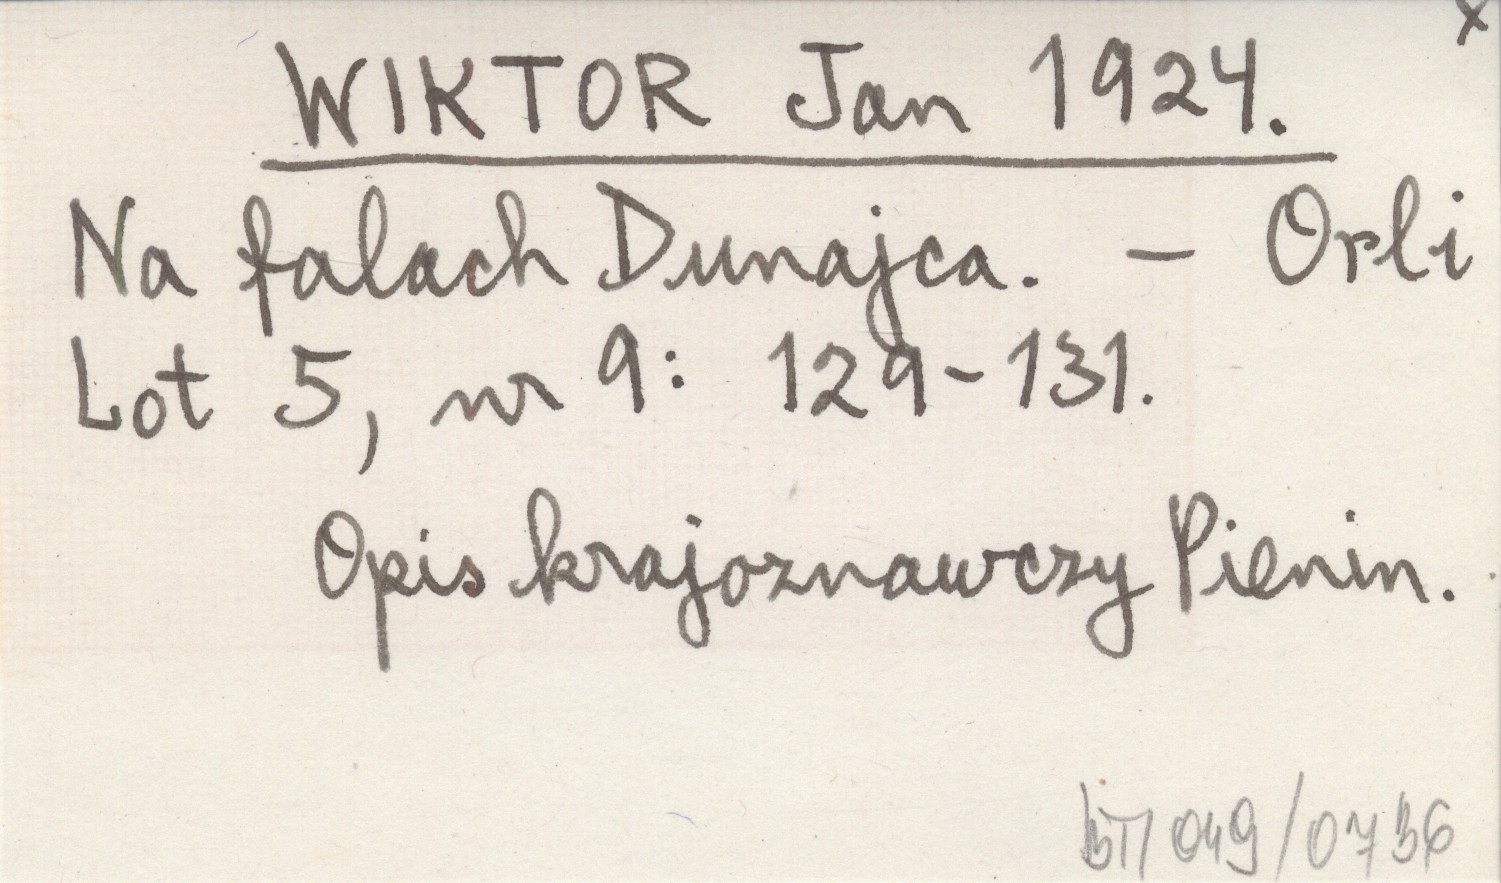 x
WIKTOR Jan 1924.
Na falach Dunajca. – Orli
Lot 5, nr 9: 129-131.
Opis krajoznawczy Pienin.
049/0736